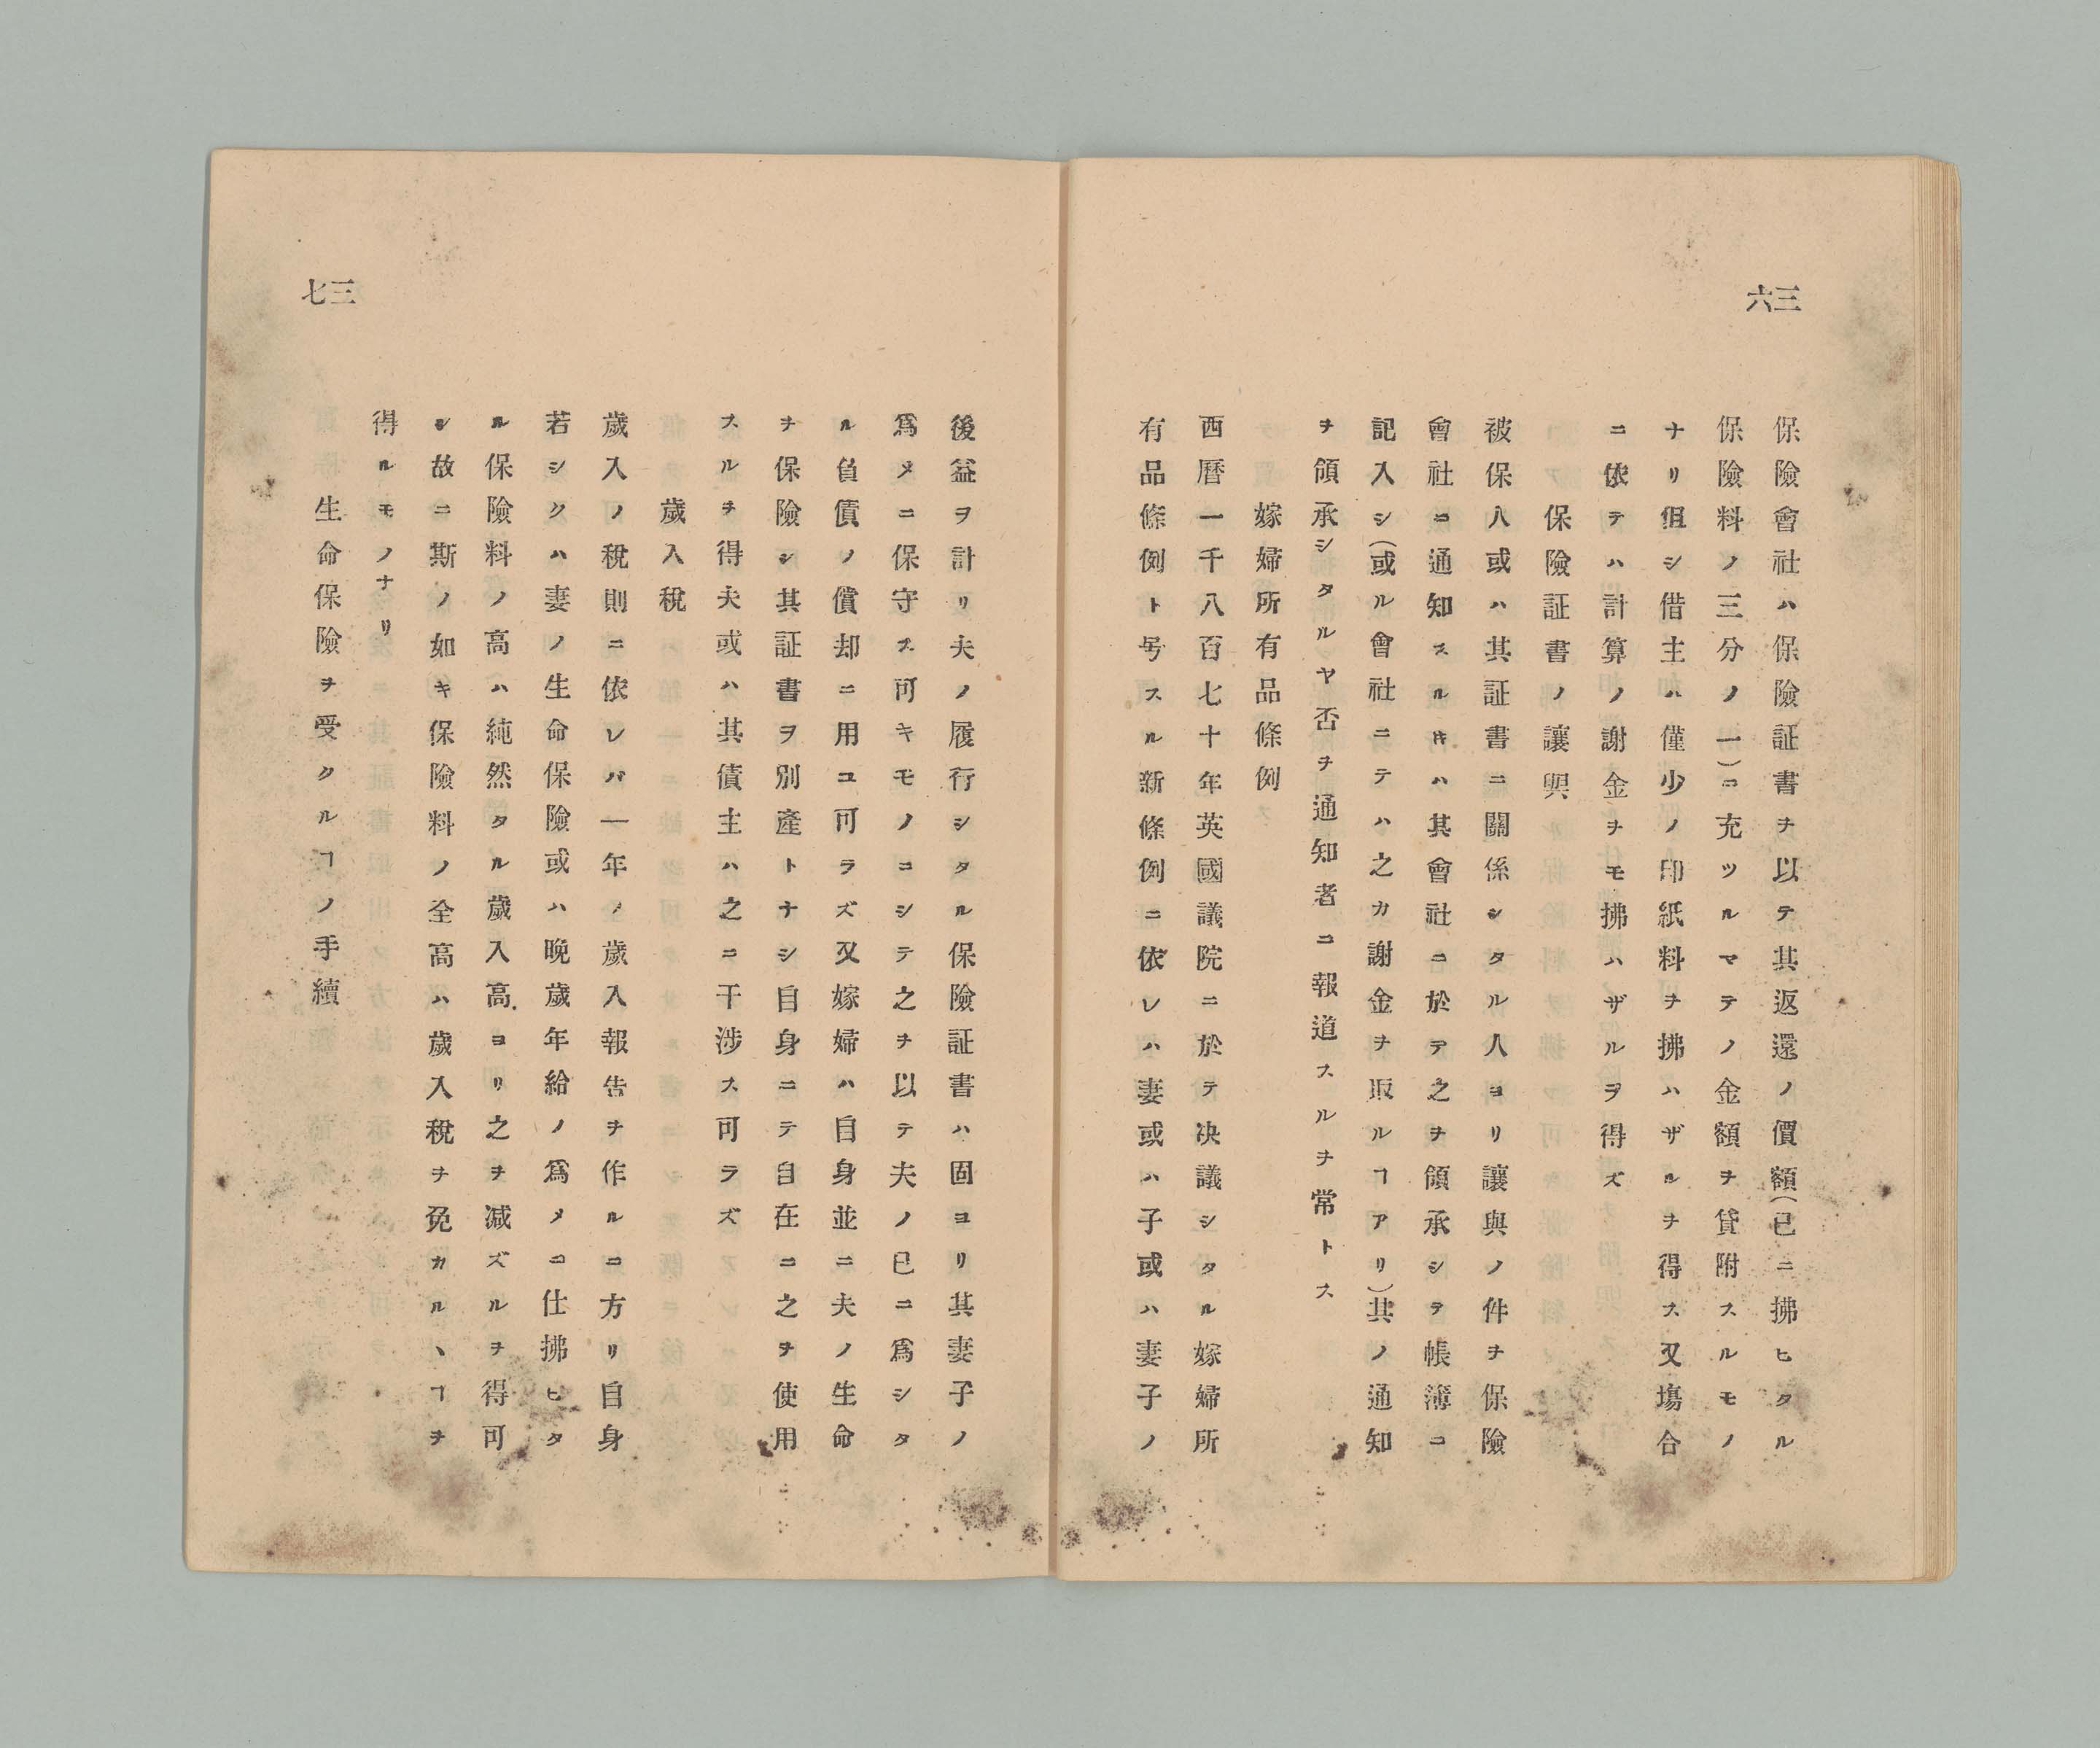 三六
保險會社ハ保險証書ヲ以テ其返還ノ價額(已ニ拂ヒタル
保險料ノ三分ノ一)ニ充ツルマテノ金額ヲ貸附スルモノ
ナリ但シ借主ハ僅少ノ印紙料ヲ拂ハザルヲ得ス又塲合
ニ依テハ計算ノ謝金ヲモ拂ハザルヲ得ズ
保險証書ノ讓與
被保人或ハ其証書ニ關係シタル人ヨリ讓與ノ件ヲ保險
會社ニ通知スルキハ其會社ニ於テ之ヲ領承シテ帳簿ニ
記入シ(或ル會社ニテハ之カ謝金ヲ取ルヿアリ)其ノ通知
ヲ領承シタルヤ否ヲ通知者ニ報道スルヲ常トス
嫁婦所有品條例
西曆一千八百七十年英國議院ニ於テ决議シタル嫁婦所
有品條例ト号スル新條例ニ依レハ妻或ハ子或ハ妻子ノ
三七
後益ヲ計リ夫ノ履行シタル保險証書ハ固ヨリ其妻子ノ
爲メニ保守ス可キモノニシテ之ヲ以テ夫ノ已ニ爲シタ
ル負債ノ償却ニ用ユ可ラズ又嫁婦ハ自身並ニ夫ノ生命
ヲ保險シ其証書ヲ別產トナシ自身ニテ自在ニ之ヲ使用
スルヲ得夫或ハ其債主ハ之ニ干涉ス可ラズ
歲入稅
歲入ノ稅則ニ依レバ一年ノ歲入報告ヲ作ルニ方リ自身
若シクハ妻ノ生命保險或ハ晚歲年給ノ爲メニ仕拂ヒタ
ル保險料ノ高ハ純然タル歲入高ヨリ之ヲ減ズルヲ得可
シ故ニ斯ノ如キ保險料ノ全高ハ歲入稅ヲ免カルヽヿヲ
得ルモノナリ
生命保險ヲ受クルヿノ手續